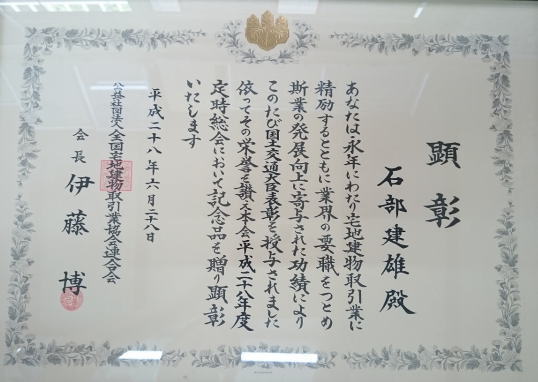 顕彰
石部建雄殿
あなたは永年にわたり宅地建物取引業に
精励するとともに業界の要職をつとめ
斯業の発展向上に寄与された功績により
このたび国土交通大臣表彰を授与されました
依ってその栄誉を讃え本会平成二十八年度
定時総会において記念品を贈り顕彰
いたします
平成二十八年六月二十八日
公益社団法人全国宅地建物取引業協会連合会
会長 伊藤 博